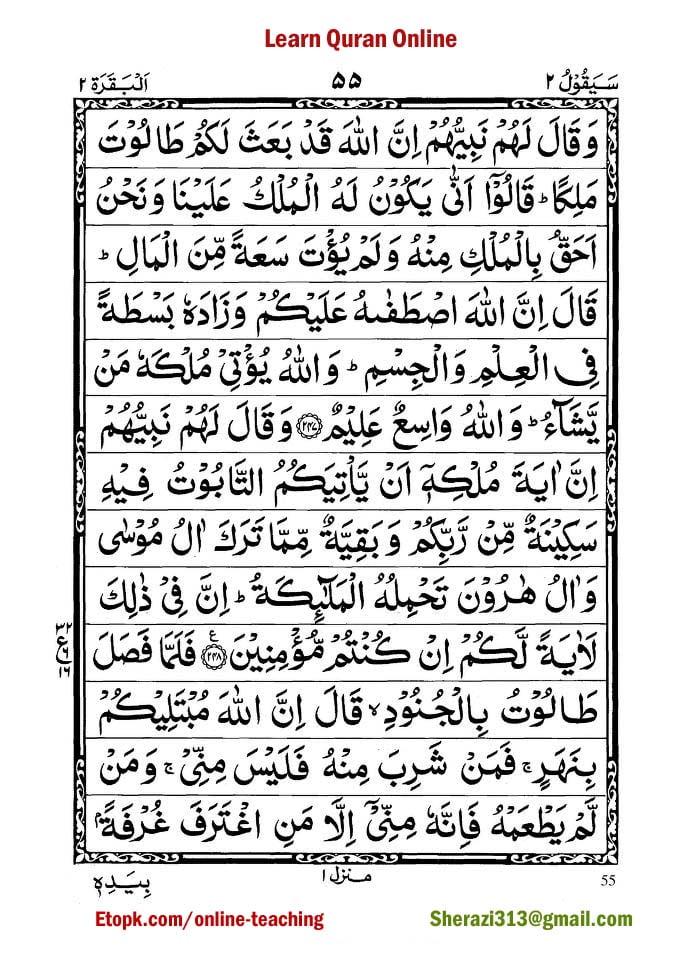 Learn Quran Online
سَيَقُوْلُ ٢
٥٥
اَلْبَقَرَة ٢
وَقَالَ لَهُمْ نَبِيُّهُمْ اِنَّ اللّٰهَ قَدْ بَعَثَ لَكُمْ طَالُوْتَ
مَلِكًا ؕ قَالُوْۤا اَنّٰى يَكُوْنُ لَهُ الْمُلْكُ عَلَيْنَا وَنَحْنُ
اَحَقُّ بِالْمُلْكِ مِنْهُ وَلَمْ يُؤْتَ سَعَةً مِّنَ الْمَالِ ؕ
قَالَ اِنَّ اللّٰهَ اصْطَفٰىهُ عَلَيْكُمْ وَزَادَهٗ بَسْطَةً
فِى الْعِلْمِ وَالْجِسْمِ ؕ وَاللّٰهُ يُؤْتِىْ مُلْكَهٗ مَنْ
يَّشَآءُ ؕ وَاللّٰهُ وَاسِعٌ عَلِيْمٌ ﴿٢٤٧﴾ وَقَالَ لَهُمْ نَبِيُّهُمْ
اِنَّ اٰيَةَ مُلْكِهٖۤ اَنْ يَّاْتِيَكُمُ التَّابُوْتُ فِيْهِ
سَكِيْنَةٌ مِّنْ رَّبِّكُمْ وَبَقِيَّةٌ مِّمَّا تَرَكَ اٰلُ مُوْسٰى
وَاٰلُ هٰرُوْنَ تَحْمِلُهُ الْمَلٰٓئِكَةُ ؕ اِنَّ فِىْ ذٰلِكَ
لَاٰيَةً لَّكُمْ اِنْ كُنْتُمْ مُّؤْمِنِيْنَ ﴿٢٤٨﴾ ع فَلَمَّا فَصَلَ
٣٢
ع
٦
١٦
طَالُوْتُ بِالْجُنُوْدِ ۙ قَالَ اِنَّ اللّٰهَ مُبْتَلِيْكُمْ
بِنَهَرٍ ۚ فَمَنْ شَرِبَ مِنْهُ فَلَيْسَ مِنِّىْ ۚ وَمَنْ
لَّمْ يَطْعَمْهُ فَاِنَّهٗ مِنِّىْۤ اِلَّا مَنِ اغْتَرَفَ غُرْفَةًۢ
بِيَدِهٖ
منزل ١
55
Etopk.com/online-teaching
Sherazi313@gmail.com